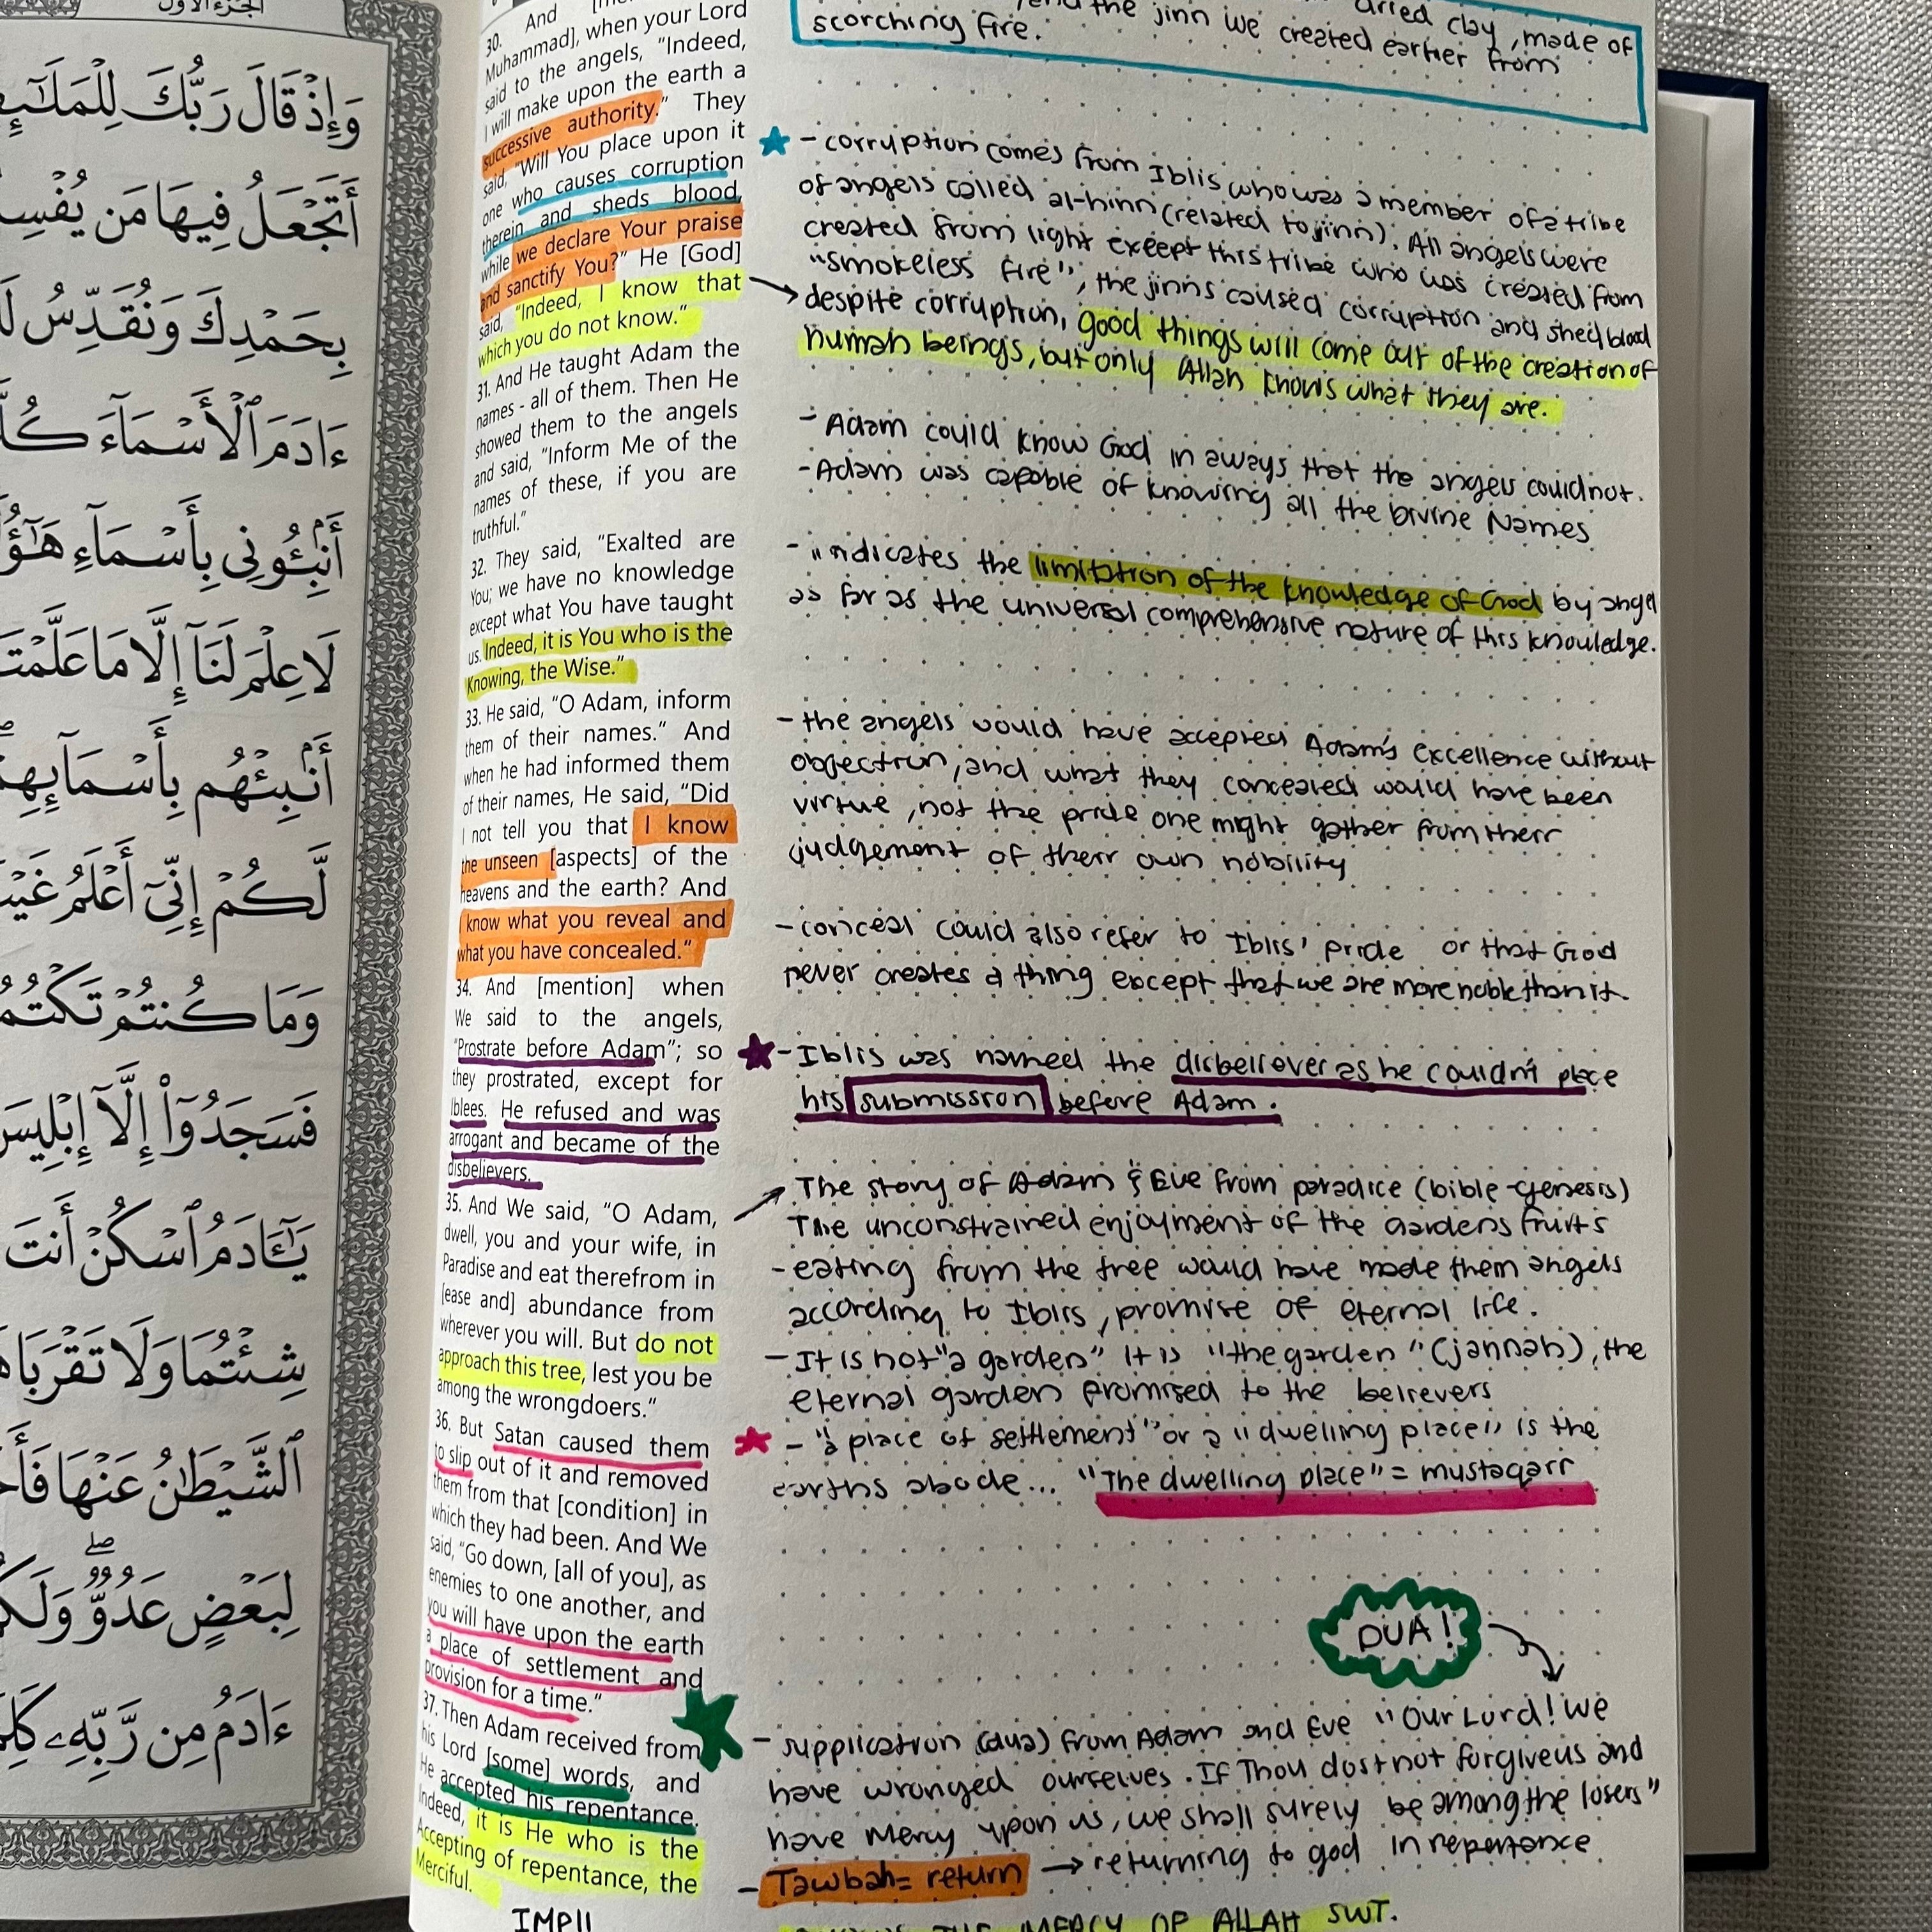 الجزء الأول
وَإِذْ قَالَ رَبُّكَ لِلْمَلَٰٓئِ
أَتَجْعَلُ فِيهَا مَن يُفْسِ
بِحَمْدِكَ وَنُقَدِّسُ لَ
ءَادَمَ ٱلْأَسْمَآءَ كُلَّ
أَنۢبِـُٔونِى بِأَسْمَآءِ هَٰٓؤُ
لَا عِلْمَ لَنَآ إِلَّا مَا عَلَّمْتَ
أَنۢبِئْهُم بِأَسْمَآئِهِ
لَّكُمْ إِنِّىٓ أَعْلَمُ غَيْ
وَمَا كُنتُمْ تَكْتُمُ
فَسَجَدُوٓا۟ إِلَّآ إِبْلِيسَ
يَٰٓـَٔادَمُ ٱسْكُنْ أَنتَ
شِئْتُمَا وَلَا تَقْرَبَا هَ
ٱلشَّيْطَٰنُ عَنْهَا فَأَخْ
لِبَعْضٍ عَدُوٌّ ۖ وَلَكُ
ءَادَمُ مِن رَّبِّهِۦ كَلِ
30. And
Muhammad], when your Lord
said to the angels, "Indeed,
I will make upon the earth a
successive authority." They
said, "Will You place upon it
one who causes corruption
therein and sheds blood,
while we declare Your praise
and sanctify You?" He [God]
said, "Indeed, I know that
which you do not know."
31. And He taught Adam the
names - all of them. Then He
showed them to the angels
and said, "Inform Me of the
names of these, if you are
truthful."
32. They said, "Exalted are
You; we have no knowledge
except what You have taught
us. Indeed, it is You who is the
Knowing, the Wise."
33. He said, "O Adam, inform
them of their names." And
when he had informed them
of their names, He said, "Did
I not tell you that I know
the unseen [aspects] of the
heavens and the earth? And
I know what you reveal and
what you have concealed."
34. And [mention] when
We said to the angels,
"Prostrate before Adam"; so
they prostrated, except for
Iblees. He refused and was
arrogant and became of the
disbelievers.
35. And We said, "O Adam,
dwell, you and your wife, in
Paradise and eat therefrom in
[ease and] abundance from
wherever you will. But do not
approach this tree, lest you be
among the wrongdoers."
36. But Satan caused them
to slip out of it and removed
them from that [condition] in
which they had been. And We
said, "Go down, [all of you], as
enemies to one another, and
you will have upon the earth
a place of settlement and
provision for a time."
37. Then Adam received from
his Lord [some] words, and
He accepted his repentance.
Indeed, it is He who is the
Accepting of repentance, the
Merciful.
IMP!!
dried clay, made of
the jinn we created earlier from
scorching fire.
- corruption comes from Iblis who was a member of a tribe
of angels called al-hinn (related to jinn). All angels were
created from light except this tribe who was created from
"smokeless fire", the jinns caused corruption and shed blood
despite corruption, good things will come out of the creation of
human beings, but only Allah knows what they are.
- Adam could know God in aways that the angels could not.
- Adam was capable of knowing all the Divine Names
- "indicates the limitation of the knowledge of God by angel
as far as the universal comprehensive nature of this knowledge.
- the angels would have accepted Adam's excellence without
objection, and what they concealed would have been
virtue, not the pride one might gather from their
judgement of their own nobility
- conceal could also refer to Iblis' pride or that God
never creates a thing except that we are more noble than it.
- Iblis was named the disbeliever as he couldn't place
his submission before Adam.
The story of Adam & Eve from paradice (bible-genesis)
The unconstrained enjoyment of the gardens fruits
- eating from the tree would have made them angels
according to Iblis, promise of eternal life.
- It is not "a garden" It is "the garden" (jannah), the
eternal garden promised to the believers
- "a place of settlement" or a "dwelling place" is the
earths abode... "The dwelling place" = mustaqarr
DUA!
- supplication (dua) from Adam and Eve "Our Lord! We
have wronged ourselves. If Thou dost not forgive us and
have Mercy upon us, we shall surely be among the losers"
- Tawbah = return → returning to god in repentance
THE MERCY OF ALLAH SWT.